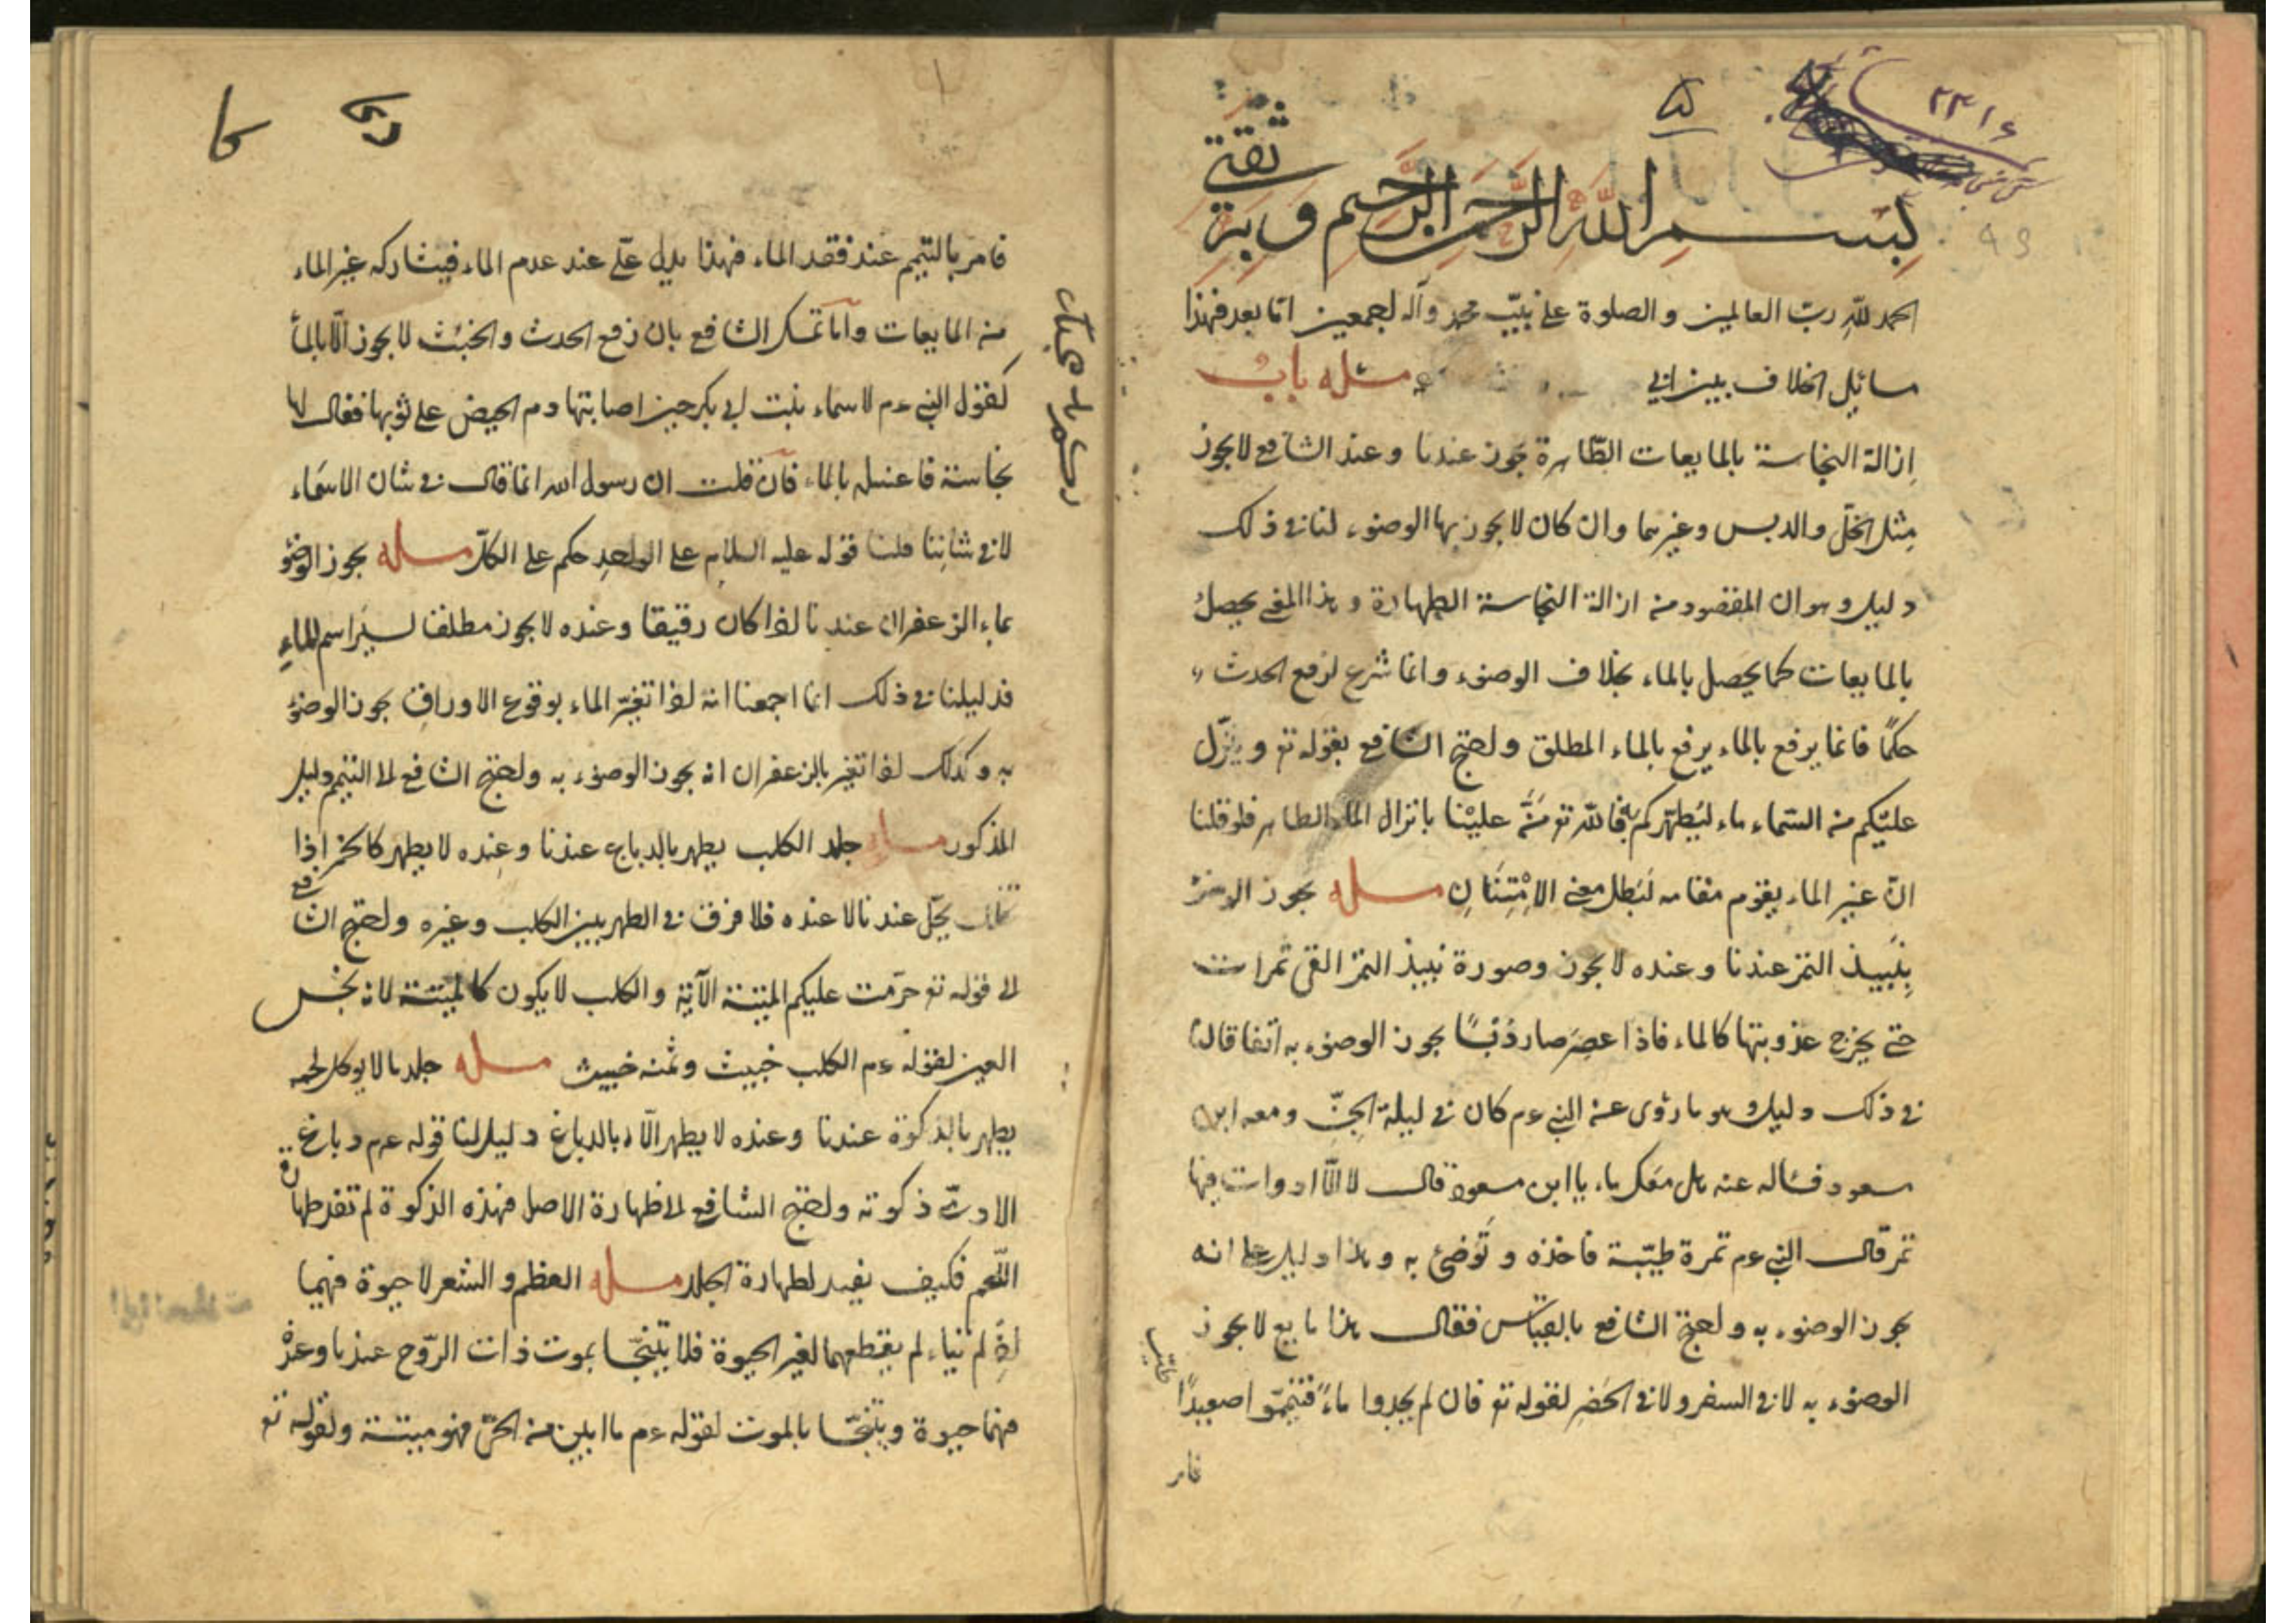 ٢٣١٤
بسم الله الرحمن الرحيم وبه
ثقتي
الحمد للّه ربّ العالمين والصلوة على نبيّه محمد وآله اجمعين امّا بعد فهذا
مسائل الخلاف بين ابي مسئله باب
ازالة النجاسة بالمايعات الطّاهرة يجوز عندنا وعند الشافع لا يجوز
مثل الخلّ والدبس وغيرهما وان كان لا يجوز بها الوضوء لنا في ذلك
دليل وهو ان المقصود من ازالة النجاسة الطهارة وهذا المعنى يحصل
بالمايعات كما يحصل بالماء بخلاف الوضوء وانما شرع لرفع الحدث
حكمًا فانما يرفع بالماء يرفع بالماء المطلق واحتج الشافع بقوله تع وينزّل
عليكم من السّماء ماء ليُطهّركم به فاللّه تع مَنَّ عليْنا بانزال الماء الطاهر فلو قلنا
انّ غير الماء يقوم مقامه لَبَطل معنى الامْتِنَانِ مسله يجوز الوضوء
بِنَبيذ التمر عندنا وعنده لا يجوز وصورة نبيذ التمر القى تمرات
حتى يخرج عذوبتها كالماء فاذا عصِرَ صار دُبسًا يجوز الوضوء به اتفاقا لنا
في ذلك دليل وهو ما روى عن النبي عم كان في ليلة الجنِّ ومعه ابن
مسعود فسأله عنه هل معك ماء يا ابن مسعود قال لا الّا ادوات فيها
تمر قال النبي عم تمرة طيّبة فاخذه وتَوَضئ به وهذا دليل على انه
يجوز الوضوء به واحتج الشافع بالقياس فقال هذا مايع لا يجوز
الوضوء به لا في السفر ولا في الحَضرِ لقوله تع فان لم يجدوا ماءً فتيمّموا صعيدًا
طيّبا
فامر
فامر بالتيمم عند فقد الماء فهذا يدل علّى عند عدم الماء فيشاركه غير الماء
من المايعات وامّا تمسّك الشافع بان رفع الحدث والخبُث لا يجوز الّا بالماء
كقول النبي عم لاسماء بنت ابي بكر حين اصابتها دم الحيض على ثوبها فقال لها
نجاسة فاغسله بالماء فان قلت ان رسول الله انما قال في شان الاسمَاء
لا في شانِنا قلنا قوله عليه السلام على الواحدِ حكم على الكلّ مسله يجوز الوضؤ
بماء الزعفران عندنا اذا كان رقيقا وعنده لا يجوز مطلقا لسيَر اسم الماءِ
فدليلنا في ذلك انما اجمعنا انه اذا تغيّر الماء بوقوع الاوراق يجوز الوضؤ
به وكذلك اذا تغير بالزعفران انه يجوز الوضوء به واحتج الشافع الى التيمم دليل
المذكور مسله جلد الكلب يطهر بالدباغ عندنا وعنده لا يطهر كالخمر اذا
تخلل يحّل عندنا لا عنده فلا فرق في الطهر بين الكلب وغيره واحتج الشافع
الى قوله تع حرّمت عليكم الميتة الآية والكلب لا يكون كالميتة لانه نجس
العين لقوله عم الكلب خبيث وثمنه خبيث مسله جلد ما لا يوكل لحمه
يطهر بالذكوة عندنا وعنده لا يطهر الّا بالدباغ دليل لنا قوله عم دباغ
الاديم ذكوته واحتج الشافع الى طهارة الاصل فهذه الذكوة لم تفد طهارة
اللّحم فكيف يفيد لطهارة الجلد مسله العظم والشعر لا حيوة فهيما
بموت ذات الرّوح عندنا وعنده
فيهما حيوة ويتنجّسا بالموت لقوله عم ما ابين من الحيّ فهو ميتة ولقوله تع